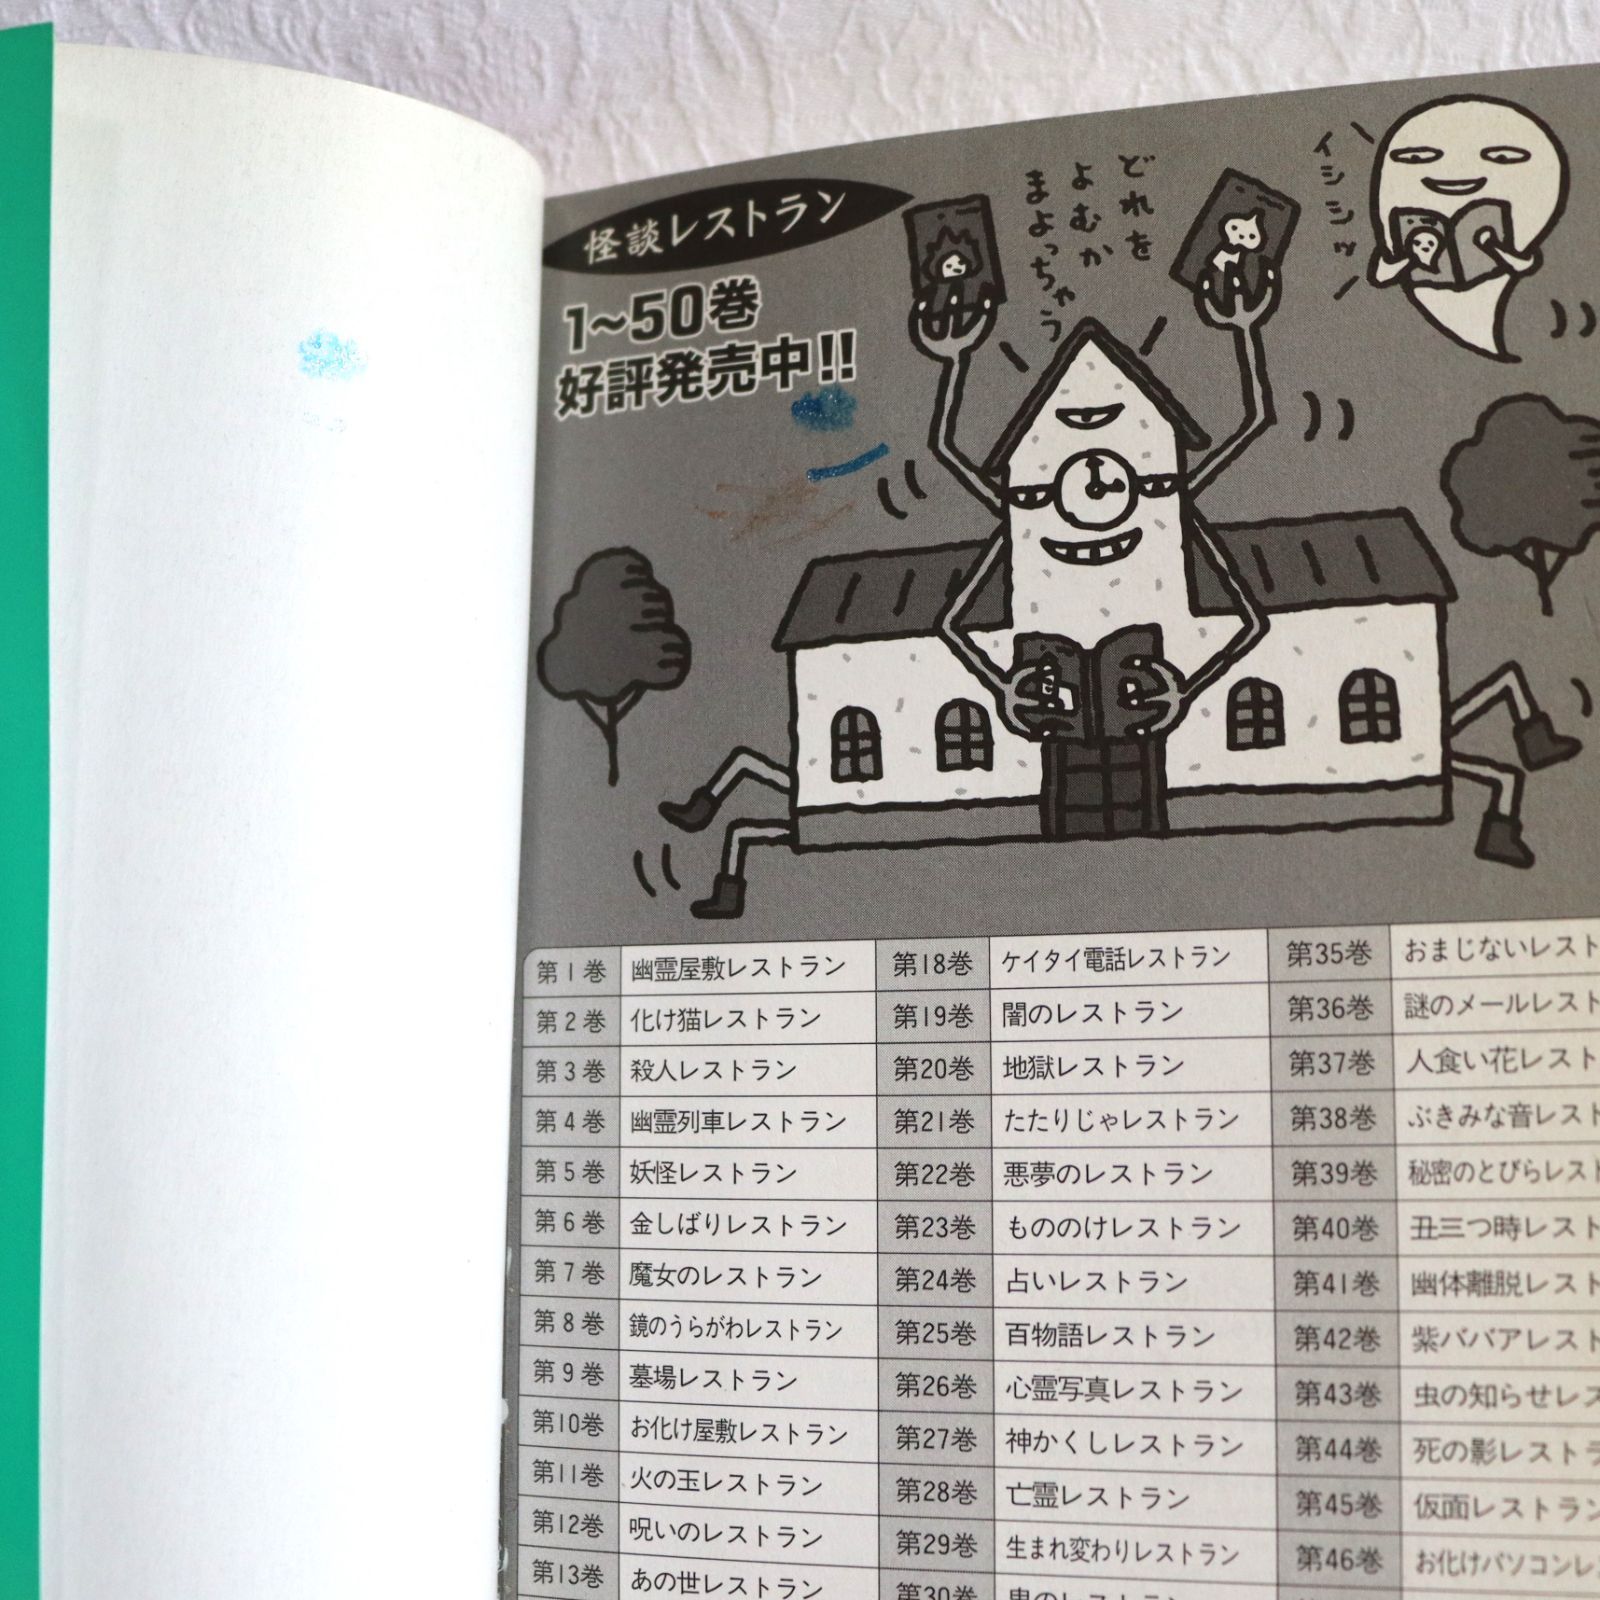 怪談レストラン
1~50巻
好評発売中!!
どれを
よむか
まよっちゃう
イシシシッ
第1巻 幽霊屋敷レストラン 第18巻 ケイタイ電話レストラン 第35巻 おまじないレスト
第2巻 化け猫レストラン 第19巻 闇のレストラン 第36巻 謎のメールレスト
第3巻 殺人レストラン 第20巻 地獄レストラン 第37巻 人食い花レスト
第4巻 幽霊列車レストラン 第21巻 たたりじゃレストラン 第38巻 ぶきみな音レスト
第5巻 妖怪レストラン 第22巻 悪夢のレストラン 第39巻 秘密のとびらレスト
第6巻 金しばりレストラン 第23巻 もののけレストラン 第40巻 丑三つ時レスト
第7巻 魔女のレストラン 第24巻 占いレストラン 第41巻 幽体離脱レスト
第8巻 鏡のうらがわレストラン 第25巻 百物語レストラン 第42巻 紫ババアレスト
第9巻 墓場レストラン 第26巻 心霊写真レストラン 第43巻 虫の知らせレス
第10巻 お化け屋敷レストラン 第27巻 神かくしレストラン 第44巻 死の影レストラ
第11巻 火の玉レストラン 第28巻 亡霊レストラン 第45巻 仮面レストラン
第12巻 呪いのレストラン 第29巻 生まれ変わりレストラン 第46巻 お化けパソコンレス
第13巻 あの世レストラン 第30巻